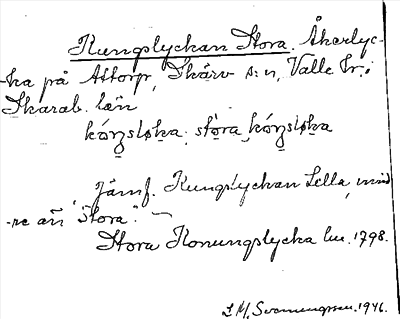 Kungslyckan Stora. Åkerlyc-
ka på Attorp, Skärv s:n, Valle hr;
Skarab. län
kóŋsløka; stora kóŋsløka
Jämf. Kungslyckan Lilla, mind
re än "Stora".
Stora Konungslycka lm. 1798.
1946.